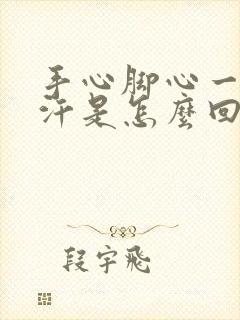 手心脚心一
汗是怎麼回
段宇飛